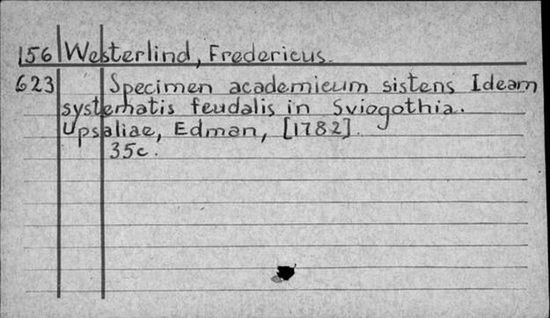 156 Westerlind, Fredericus.
623 Specimen academicum sistens Ideam
systematis feudalis in Sviogothia.
Upsaliae, Edman, [1782].
35c.